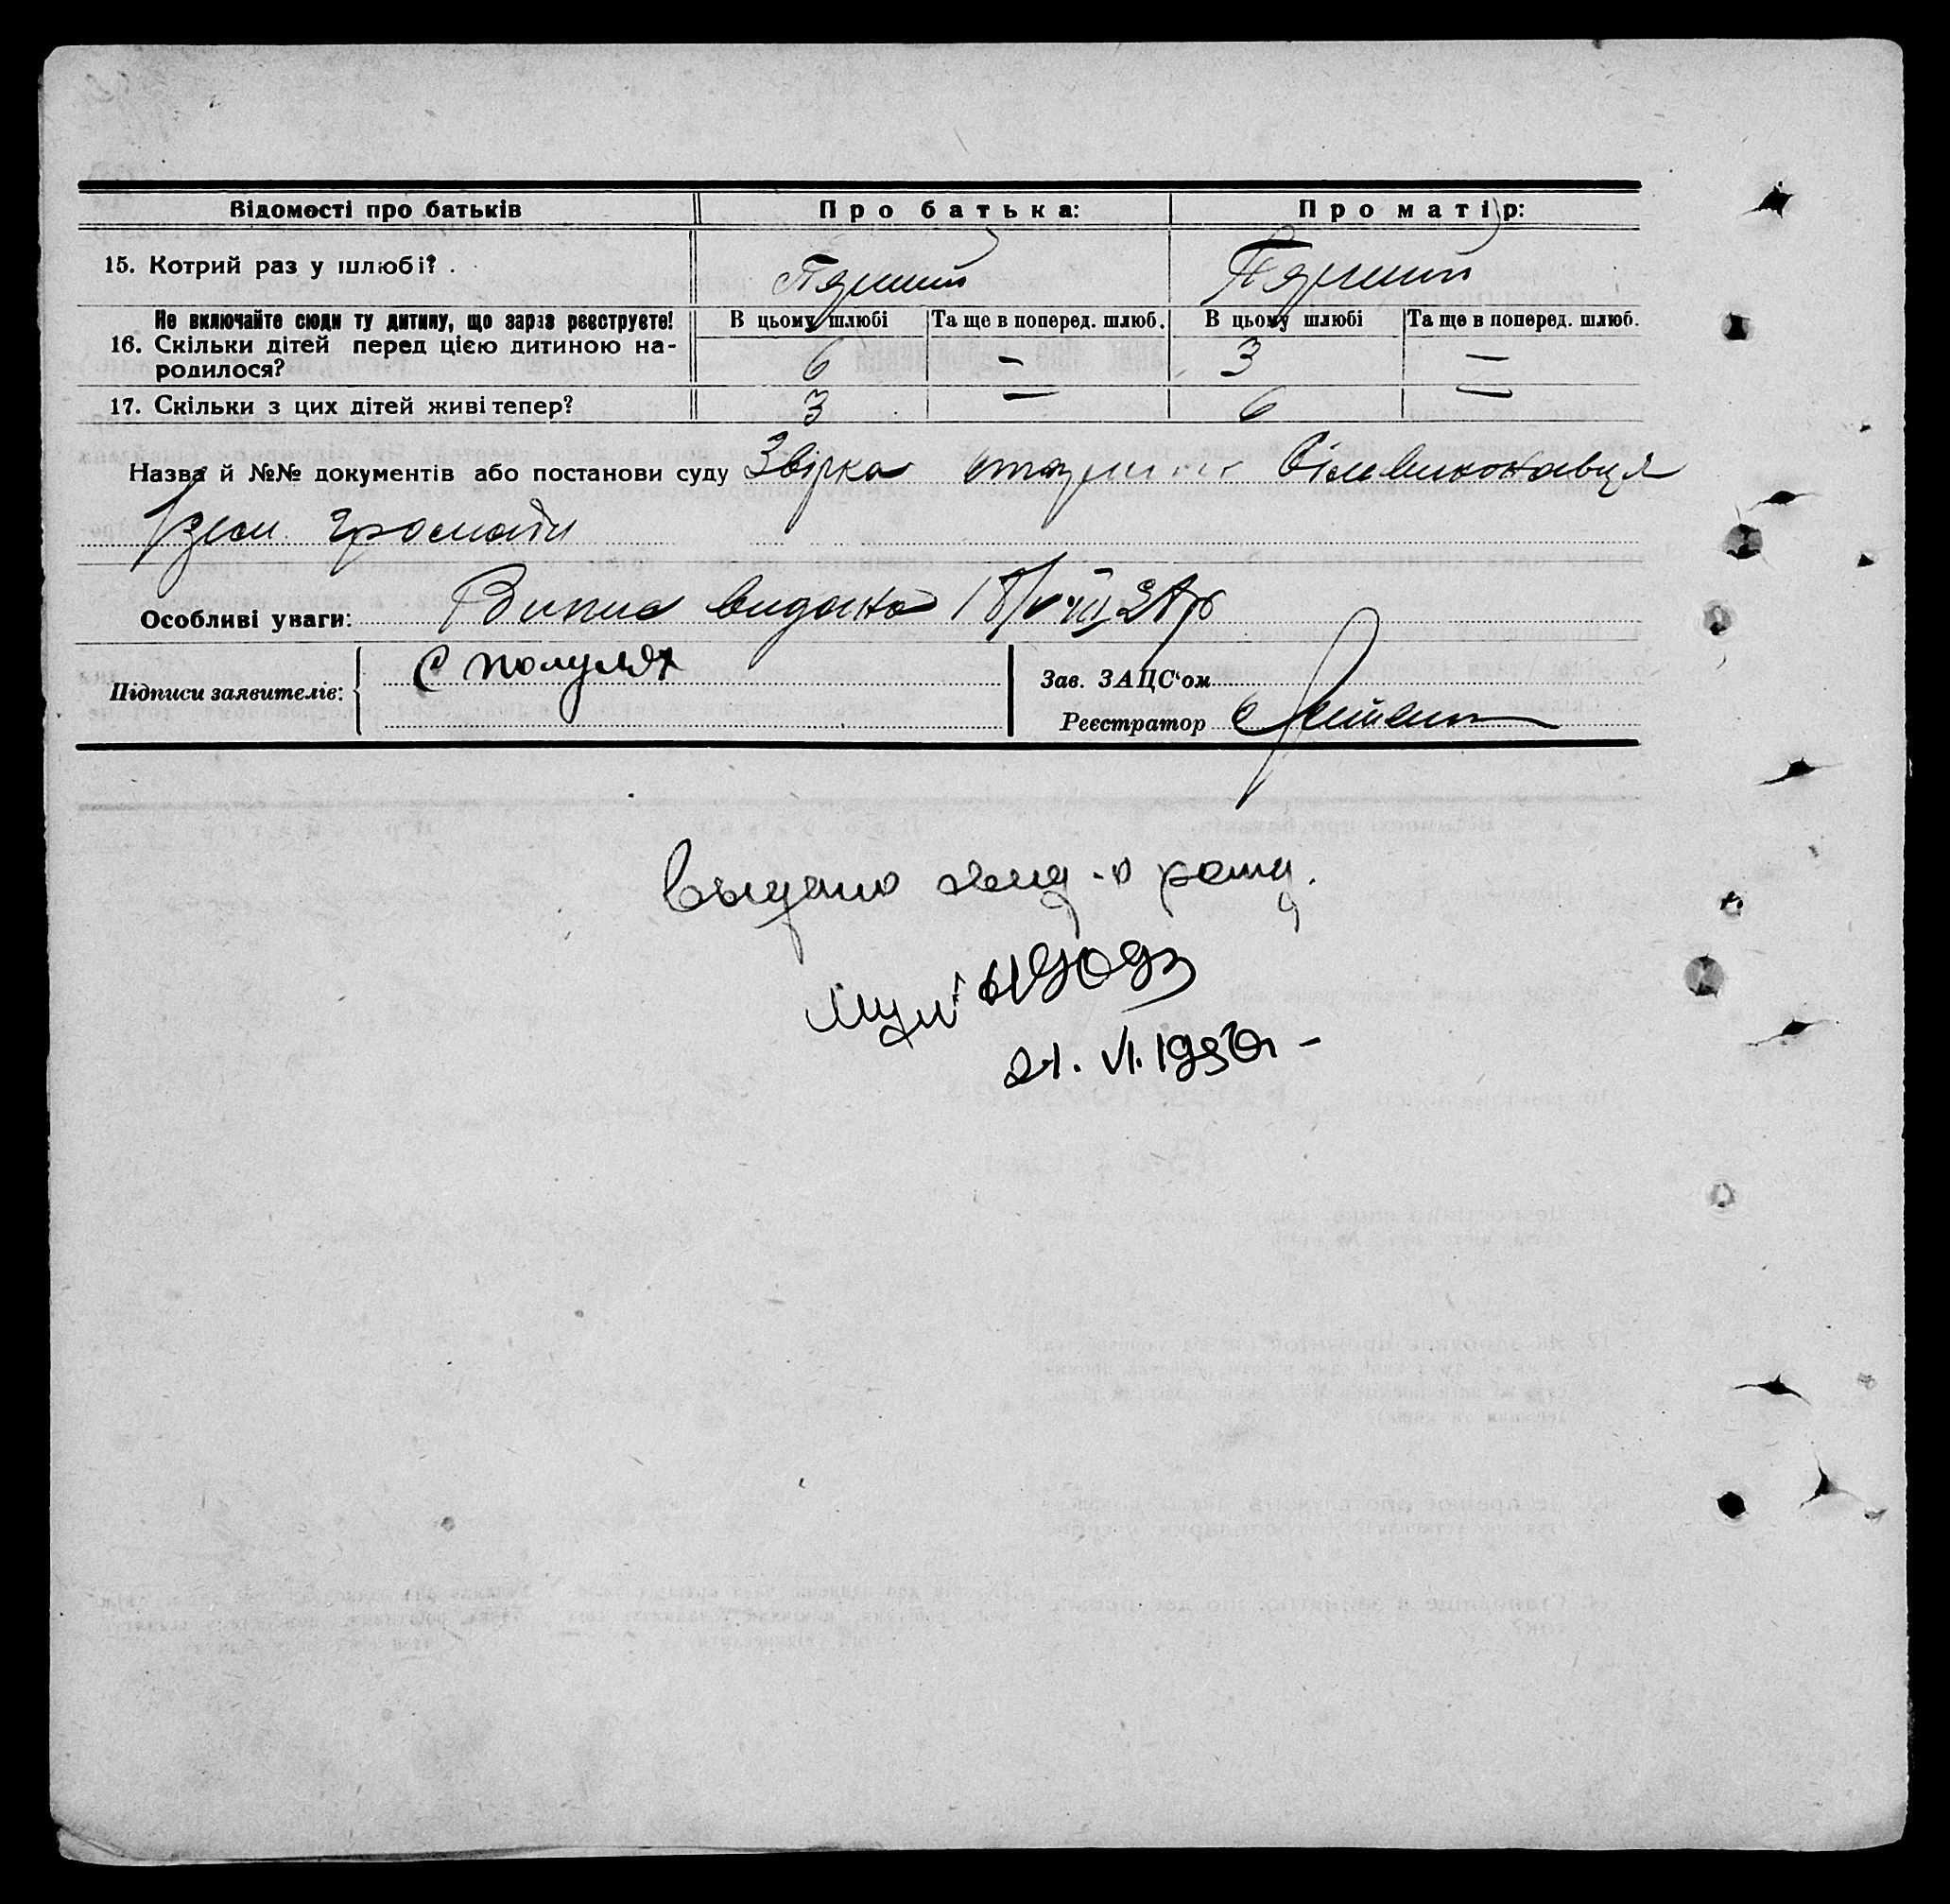 Відомості про батьків Про батька: Про матір:
15. Котрий раз у шлюбі? . Перший Перший
Не включайте сюди ту дитину, що зараз реєструєте! В цьому шлюбі Та ще в поперед. шлюб. В цьому шлюбі Та ще в поперед. шлюб.
16. Скільки дітей перед цією дитиною на-
родилося? 6 — 3 —
17. Скільки з цих дітей живі тепер? 3 — 6 —
Назва й №№ документів або постанови суду Звірка сільвиконавця
громади
Особливі уваги: Випис видано 18/VIII
Підписи заявителів: С Зав. ЗАЦС'ом
Реєстратор
выдано
21. VI. 195